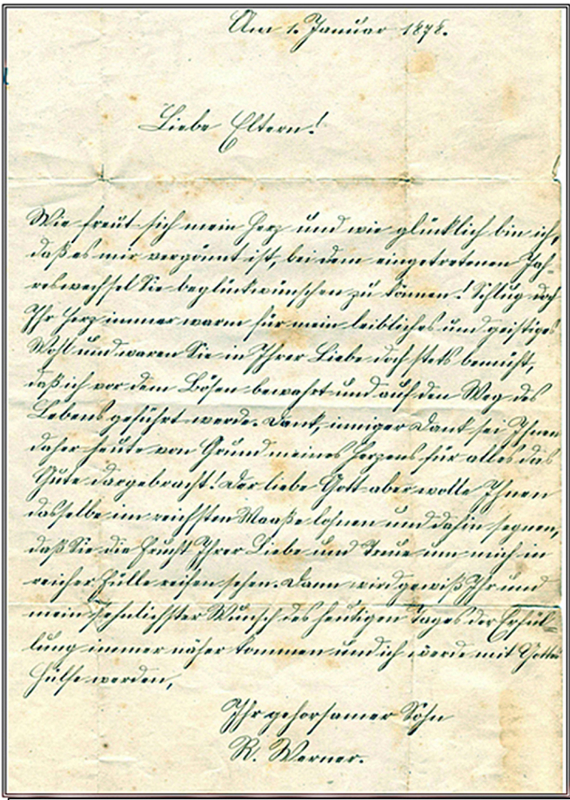 Am 1. Januar 1878.
Liebe Eltern!
Wie freut sich mein Herz und wie glücklich bin ich,
daß es mir vergönnt ist, bei dem eingetretenen Jah-
reswechsel Sie beglückwünschen zu können! Schlug doch
Ihr Herz immer warm für mein leibliches und geistiges
Wohl und waren Sie in Ihrer Liebe doch stets bemüht,
daß ich vor dem Bösen bewahrt und auf den Weg des
Lebens geführt werde. Dank, inniger Dank sei Ihnen
daher heute von Grund meines Herzens für alles das
Gute dargebracht! Der liebe Gott aber wolle Ihnen
dasselbe im reichsten Maaße lohnen und dahin segnen,
daß Sie die Frucht Ihrer Liebe und Treue um mich in
reicher Fülle reifen sehen. Dann wird gewiß Ihr und
mein sehnlichster Wunsch des heutigen Tages der Erfül-
lung immer näher kommen und ich werde mit Gottes
Hülfe werden,
Ihr gehorsamer Sohn
R. Werner.